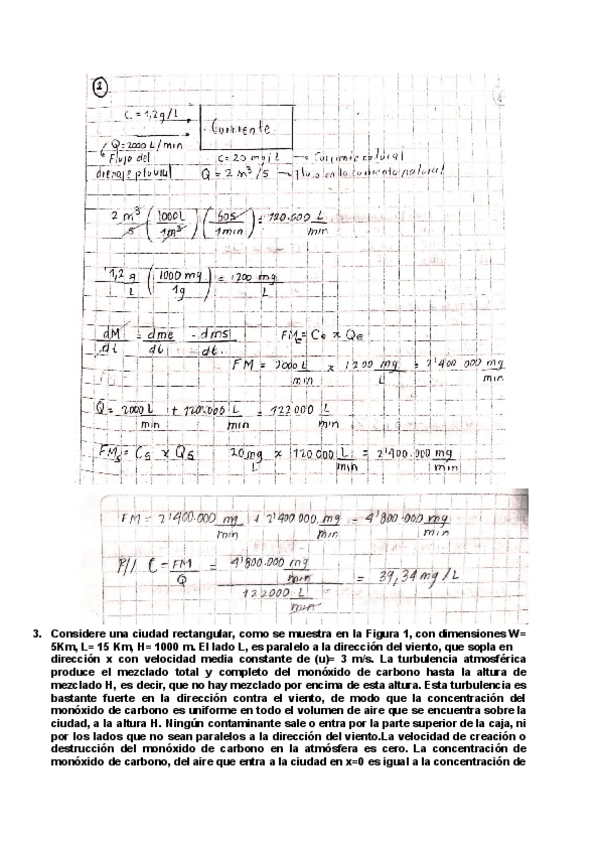 2
C = 1,2 g/L
Corriente
Q = 2000 L/min
Flujo del drenaje pluvial
C = 20 mg/L → Corriente natural
Q = 2 m³/s → flujo en la corriente natural
2 m³/s (1000 L / 1 m³) (60 s / 1 min) = 120.000 L/min
1,2 g/L (1000 mg / 1 g) = 1200 mg/L
dM/dt = dme/dt - dms/dt. FMe = Ce x Qe
FM = 2000 L/min x 1200 mg/L = 2'400 000 mg/min
Q = 2000 L/min + 120.000 L/min = 122000 L/min
FMs = Cs x Qs 20 mg/L x 120 000 L/min = 2'400.000 mg/min
FM = 2'400.000 mg/min + 2'400 000 mg/min = 4'800.000 mg/min
R// C = FM/Q = 4'800.000 mg/min / 122000 L/min = 39,34 mg/L
3. Considere una ciudad rectangular, como se muestra en la Figura 1, con dimensiones W=
5Km, L= 15 Km, H= 1000 m. El lado L, es paralelo a la dirección del viento, que sopla en
dirección x con velocidad media constante de (u)= 3 m/s. La turbulencia atmosférica
produce el mezclado total y completo del monóxido de carbono hasta la altura de
mezclado H, es decir, que no hay mezclado por encima de esta altura. Esta turbulencia es
bastante fuerte en la dirección contra el viento, de modo que la concentración del
monóxido de carbono es uniforme en todo el volumen de aire que se encuentra sobre la
ciudad, a la altura H. Ningún contaminante sale o entra por la parte superior de la caja, ni
por los lados que no sean paralelos a la dirección del viento.La velocidad de creación o
destrucción del monóxido de carbono en la atmósfera es cero. La concentración de
monóxido de carbono, del aire que entra a la ciudad en x=0 es igual a la concentración de